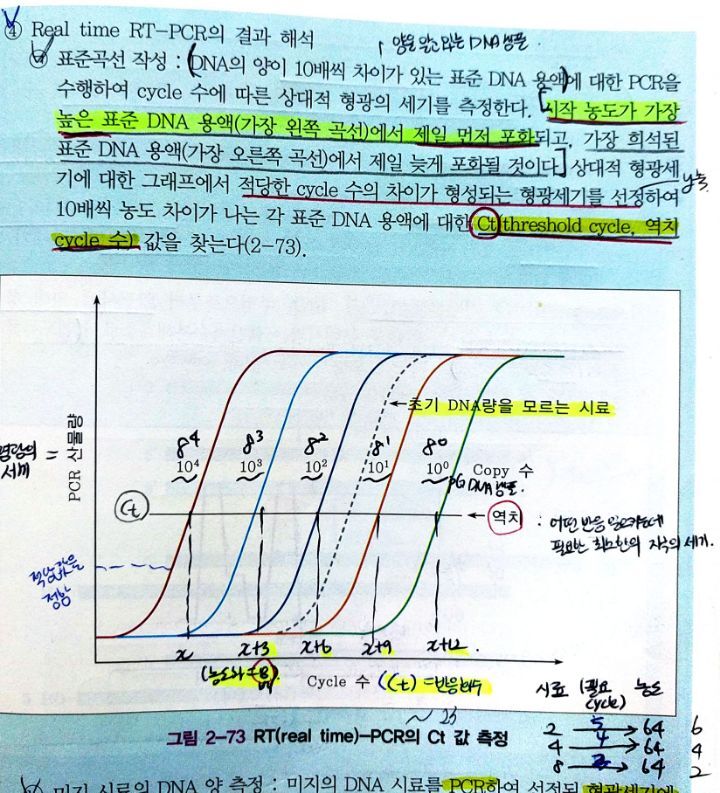 ④ Real time RT-PCR의 결과 해석
양을 알고 있는 DNA 샘플.
㉮ 표준곡선 작성 : (DNA의 양이 10배씩 차이가 있는 표준 DNA 용액)에 대한 PCR을
수행하여 cycle 수에 따른 상대적 형광의 세기를 측정한다. [시작 농도가 가장
높은 표준 DNA 용액(가장 왼쪽 곡선)에서 제일 먼저 포화되고, 가장 희석된
표준 DNA 용액(가장 오른쪽 곡선)에서 제일 늦게 포화될 것이다.] 상대적 형광세
기에 대한 그래프에서 적당한 cycle 수의 차이가 형성되는 형광세기를 선정하여
10배씩 농도 차이가 나는 각 표준 DNA 용액에 대한 Ct(threshold cycle, 역치
cycle 수) 값을 찾는다(2-73).
초기 DNA량을 모르는 시료
형광의 세기 =
PCR 산물량
8⁴ 8³ 8² 8¹ 8⁰
10⁴ 10³ 10² 10¹ 10⁰ Copy 수
DNA 샘플.
Ct
역치 : 어떤 반응 일으키는데
필요한 최소한의 자극의 세기.
적당값을
정함
x x+3 x+6 x+9 x+12.
Cycle 수 (Ct) = 반응횟수
시료 (필요 cycle) 농도
~ 23
2 5 → 64 6
4 4 → 64 4
8 → 64 2
그림 2-73 RT(real time)-PCR의 Ct 값 측정
미지 시료의 DNA 양 측정 : 미지의 DNA 시료를 PCR하여 선정된 형광세기에